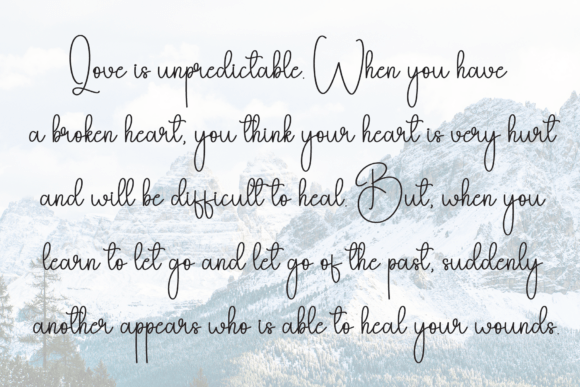 Love is unpredictable. When you have
a broken heart, you think your heart is very hurt
and will be difficult to heal. But, when you
learn to let go and let go of the past, suddenly
another appears who is able to heal your wounds.